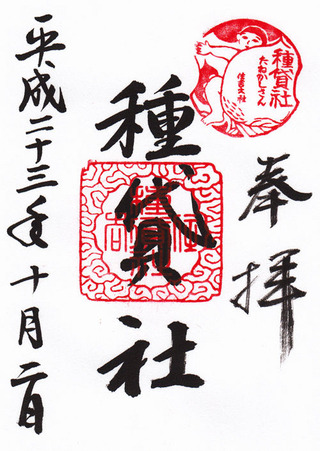 奉拝
種貸社
たねかしさん
住吉大社
種貸社
種貸社
平成二十三年十月二日